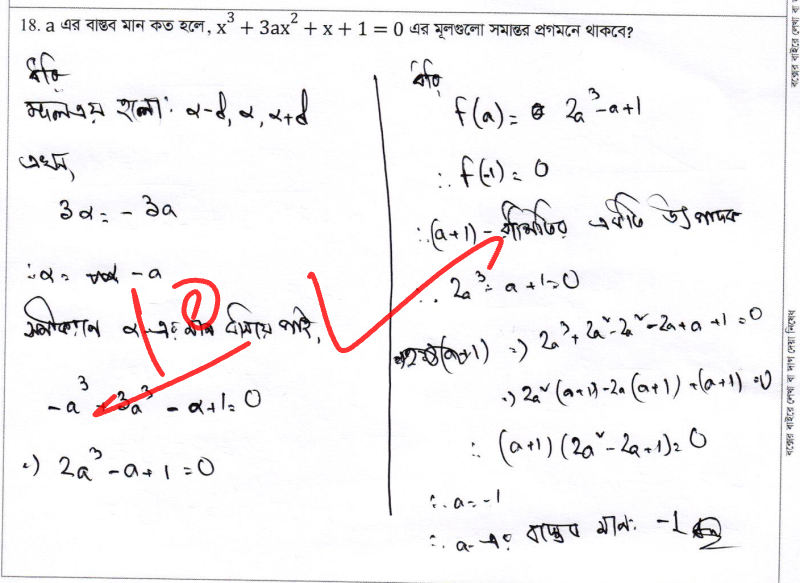 18. a এর বাস্তব মান কত হলে, x³ + 3ax² + x + 1 = 0 এর মূলগুলো সমান্তর প্রগমনে থাকবে?
ধরি
মূলত্রয় হলো: α-d, α, α+d
এখন,
3α = - 3a
∴ α = -a
সমীকরণে α-এর মান বসিয়ে পাই,
-a³ + 3a³ - a + 1 = 0
⇒) 2a³ - a + 1 = 0
ধরি,
f(a) = 2a³ - a + 1
∴ f(-1) = 0
∴ (a+1) - রাশিটির একটি উৎপাদক
∴ 2a³ - a + 1 = 0
⇒) 2a³ + 2a² - 2a² - 2a + a + 1 = 0
⇒) 2a² (a+1) - 2a (a+1) + (a+1) = 0
∴ (a+1) (2a² - 2a + 1) = 0
∴ a = -1
∴ a-এর বাস্তব মান: -1
বক্সের বাইরে লেখা বা দাগ দেয়া নিষেধ